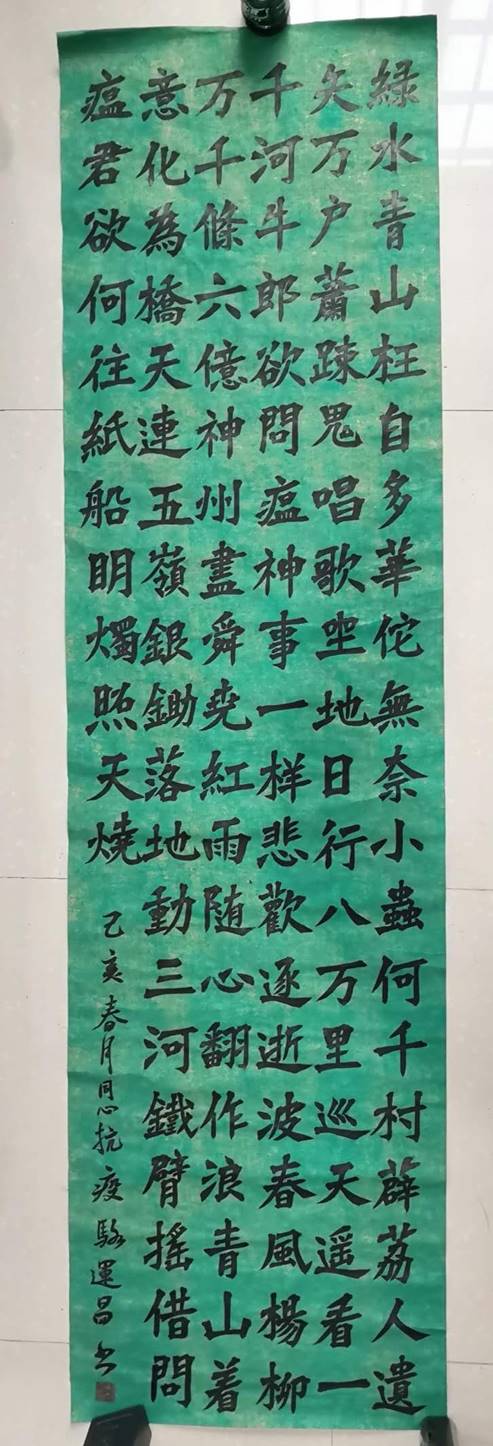 緑水青山枉自多華佗無奈小蟲何千村薜荔人遺
矢万户蕭疎鬼唱歌坐地日行八万里巡天遥看一
千河牛郎欲問瘟神事一样悲歡逐逝波春風楊柳
万千條六億神州盡舜尭紅雨随心翻作浪青山着
意化為橋天連五嶺銀鋤落地動三河鐵臂摇借問
瘟君欲何往紙船明燭照天燒
己亥春月同心抗疫駱運昌书